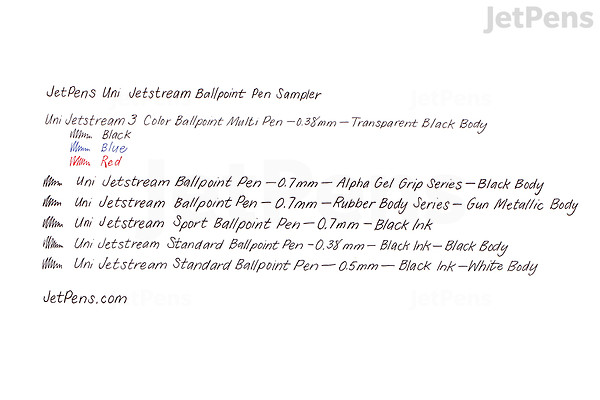 JetPens
JetPens Uni Jetstream Ballpoint Pen Sampler
Uni Jetstream 3 Color Ballpoint Multi Pen – 0.38mm – Transparent Black Body
Black
Blue
Red
Uni Jetstream Ballpoint Pen – 0.7mm – Alpha Gel Grip Series – Black Body
Uni Jetstream Ballpoint Pen – 0.7mm – Rubber Body Series – Gun Metallic Body
Uni Jetstream Sport Ballpoint Pen – 0.7mm – Black Ink
Uni Jetstream Standard Ballpoint Pen – 0.38mm – Black Ink – Black Body
Uni Jetstream Standard Ballpoint Pen – 0.5mm – Black Ink – White Body
JetPens.com